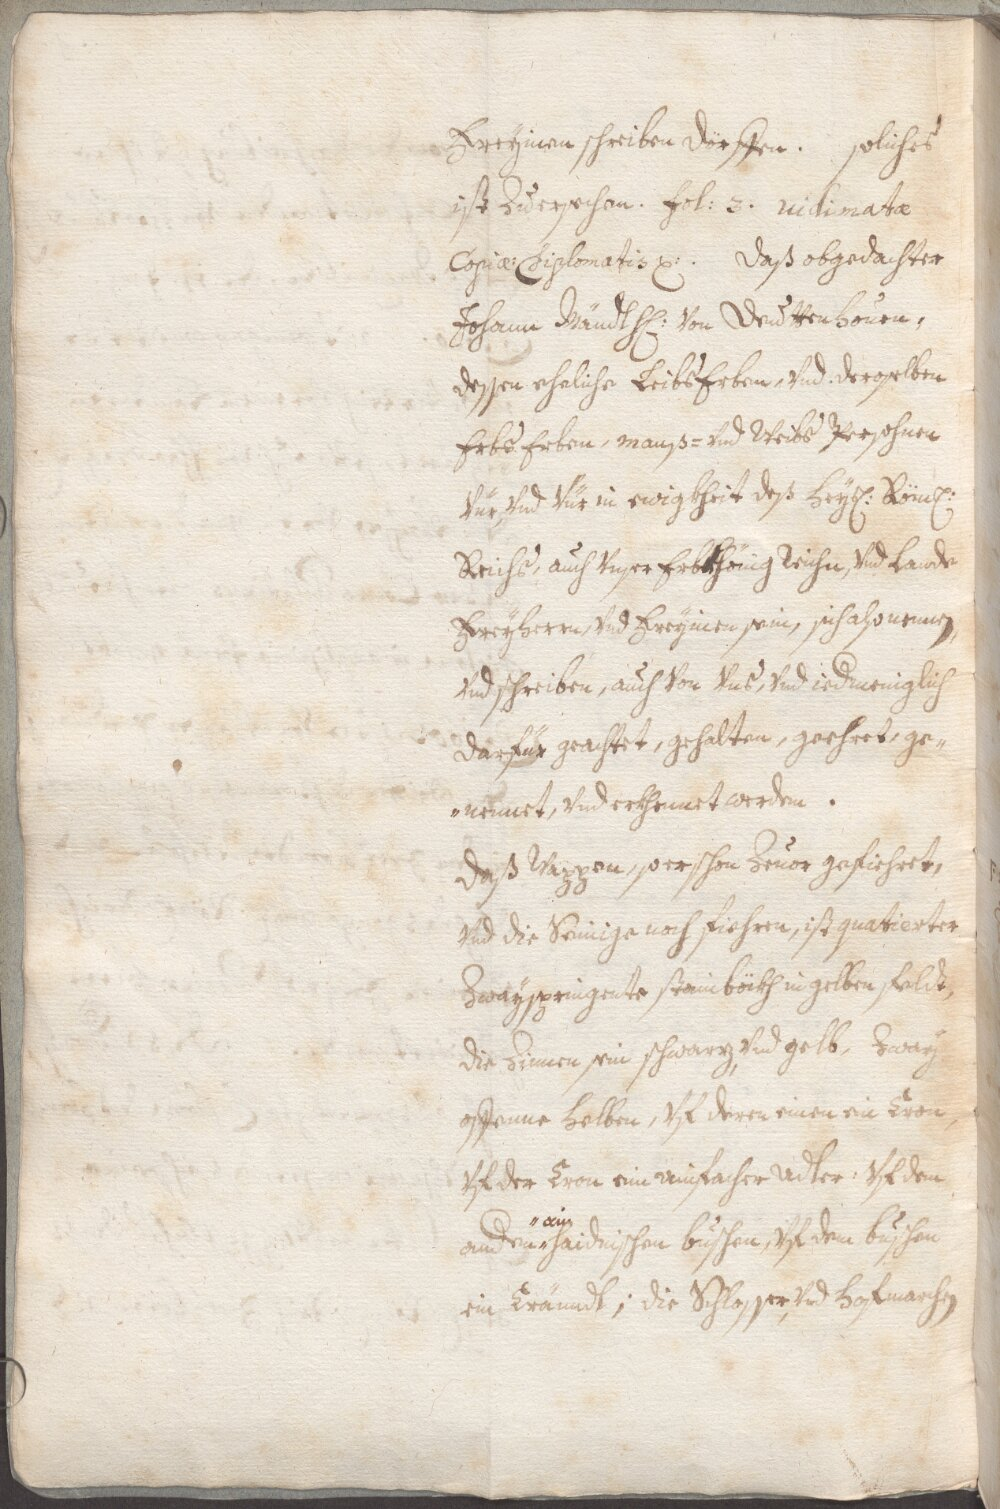 Freÿinen schreiben dörffen. soliches
ist zuersechen. fol: 3. uidimatæ
Copiæ: Diplomatis p: . Daß obgedachter
Johann Mändl H: von Deüttenhouen,
dessen eheliche LeibsErben, vnd deroselben
ErbsErben, manß= vnd Weibs Persohnen
vür, vnd vür in ewigkheit deß Heÿl: Röm:
Reichs, auch vnser Erbkhönig Reichn, vnd Lande
Freÿherrn, vnd Freÿinen sein, sich also nennen,
vnd schreiben, auch von vns, vnd iedmeniglich
darfür geachtet, gehalten, geehret, ge„
„nennet, vnd erkhennet werden .
Daß Wappen, so er schon zuuor gefiehret,
vnd die Seinige noch fiehren, ist quatierter
Zwaÿ springente stainböckh in gelben feldt,
die Zinnen sein schwarz, vnd gelb, Zwaÿ
offenne helben, vf deren einen ein Cron,
vf der Cron ein ainfacher Adler: vf dem
andern „ain„ haidnischen buschen, vf dem buschen
ein Cränndl; die Schlosser, vnd hofmarchen